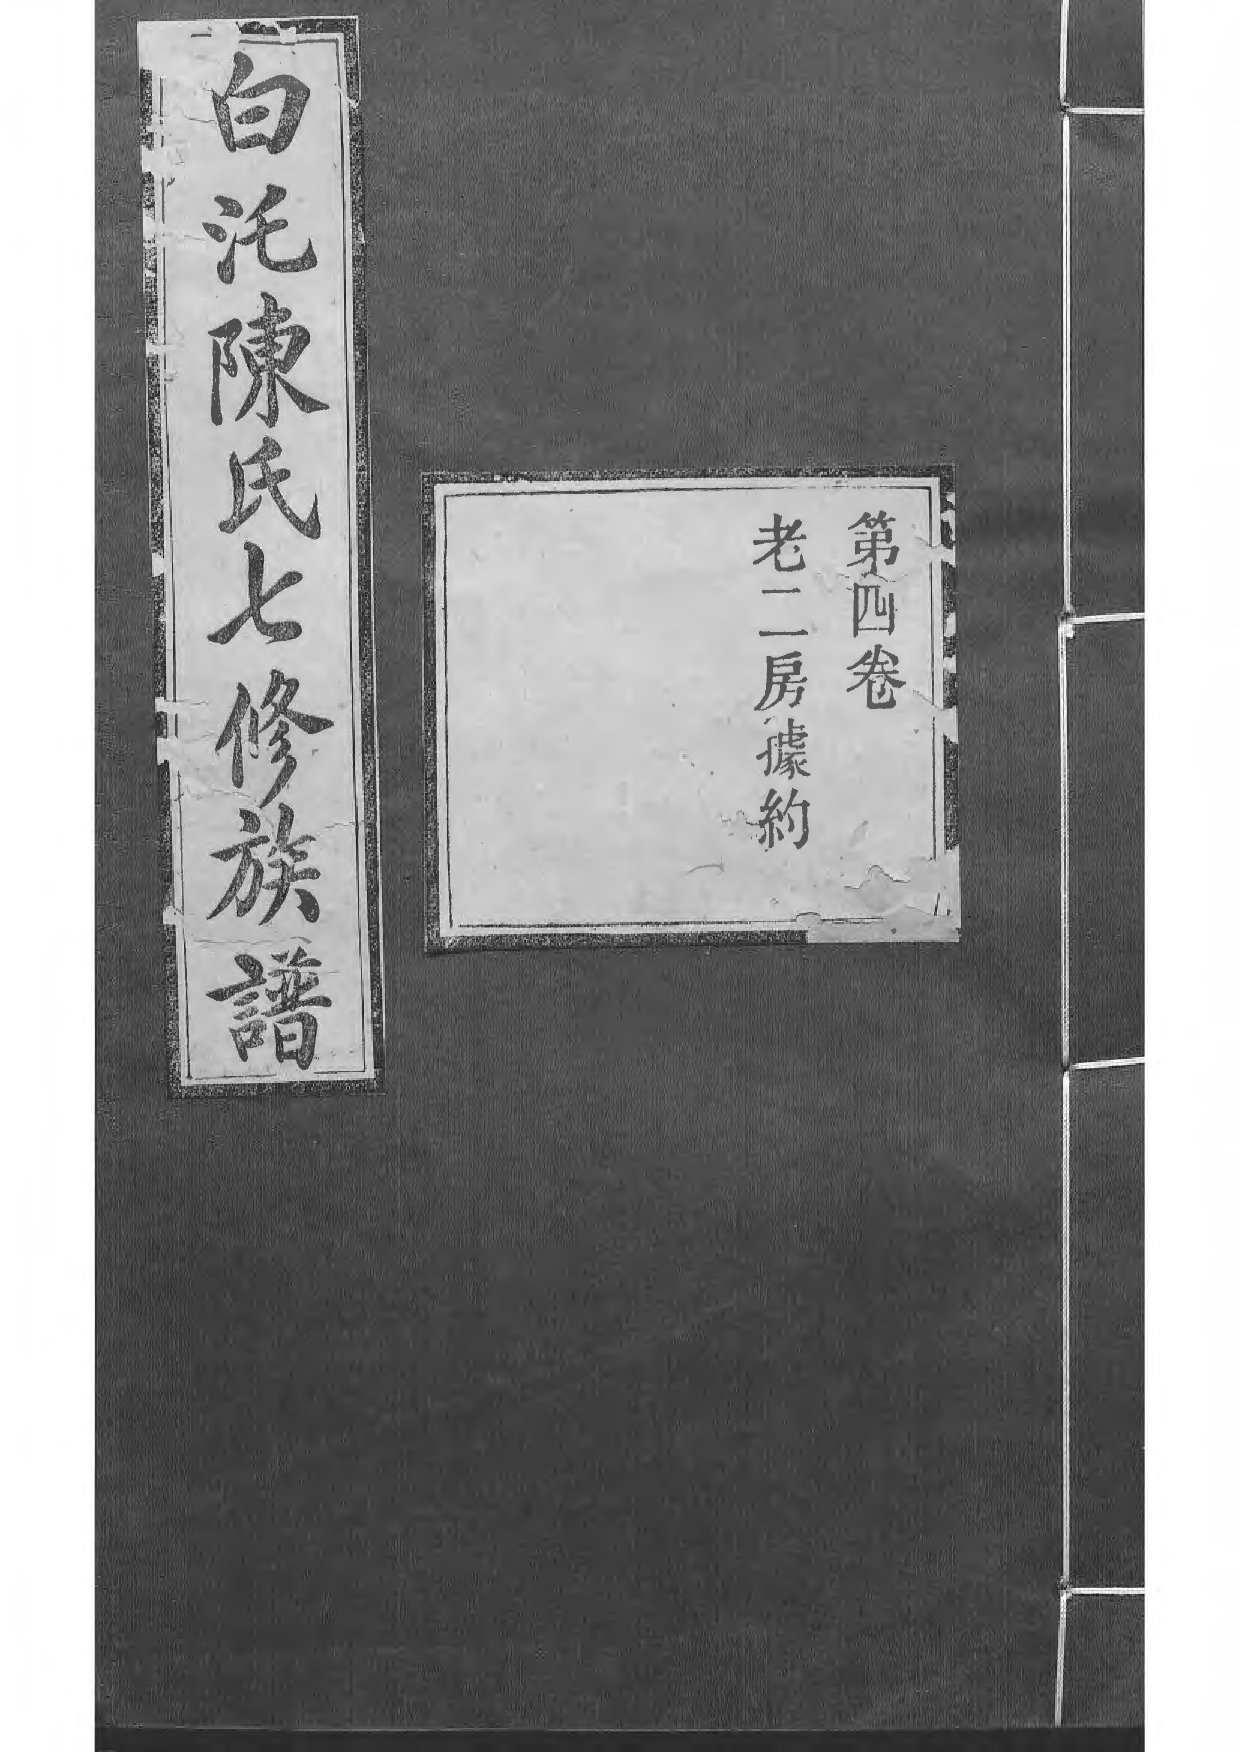 白汑陳氏七修族譜
第四卷
老二房據約